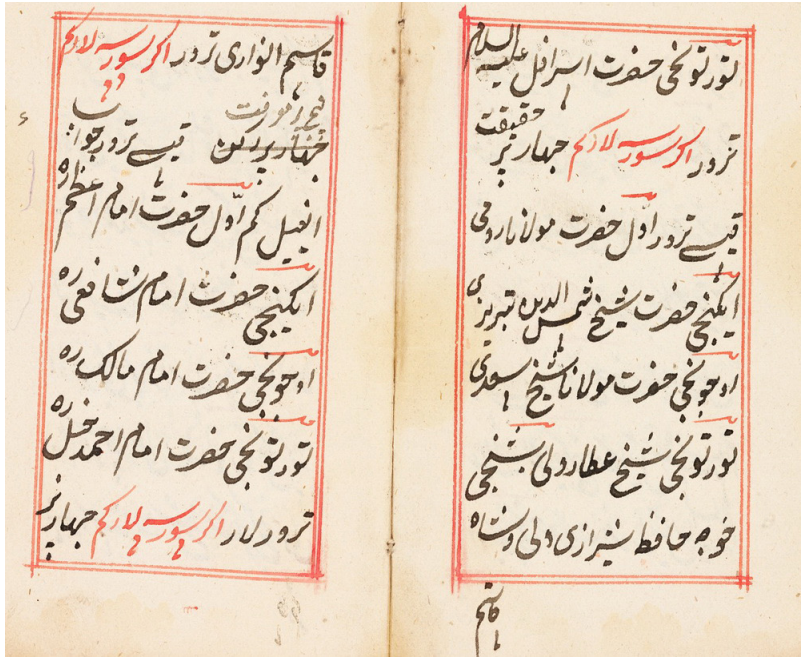 تورتونجی حضرت اسرافل علیه السلام
ترور اکر سورسه لارکم جهار پیر حقیقت
قیسے ترور اول حضرت مولانا رومی
ایکنجی حضرت شیخ شمس الدین تبریزی
اوجونجی حضرت مولانا شیخ سعدی
تورتونجی شیخ عطار ولی بشنجی
خوجه حافظ شیرازی ولی وشاه
قاسم
قاسم انواری ترور اکر سورسه لارکم
معرفت
جهار پیر قیسے ترور جواب
کم اول حضرت امام اعظم ره
ایکنجی حضرت امام شافعی ره
اوجونجی حضرت امام مالک ره
تورتونجی حضرت امام احمد حنبل ره
ترور لار اکر سورسه لارکم جهار پیر